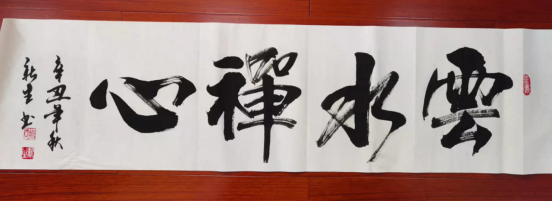 雲水禪心
辛丑年秋
新生书